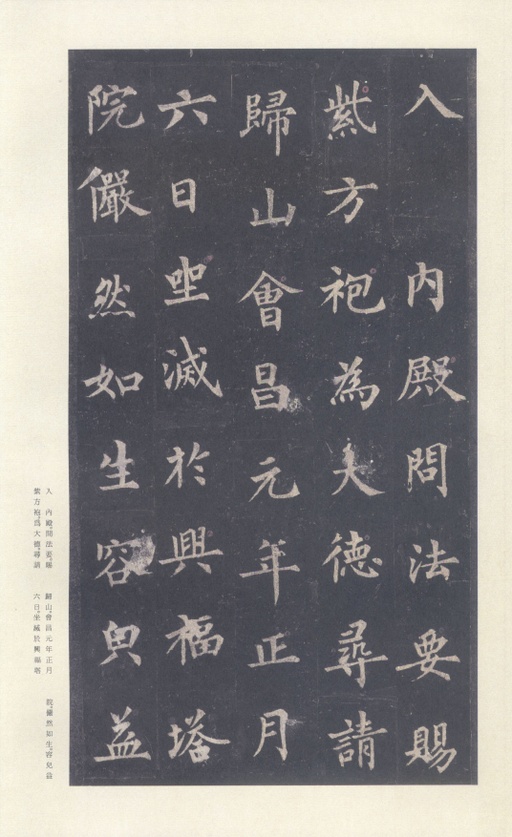 入　內殿問法要賜
紫方袍為大德尋請
歸山會昌元年正月
六日坐滅於興福塔
院儼然如生容皃益
入　內殿。問法要。賜
紫方袍。爲大德。尋請
歸山。會昌元年正月
六日。坐滅於興福塔
院。儼然如生。容皃益